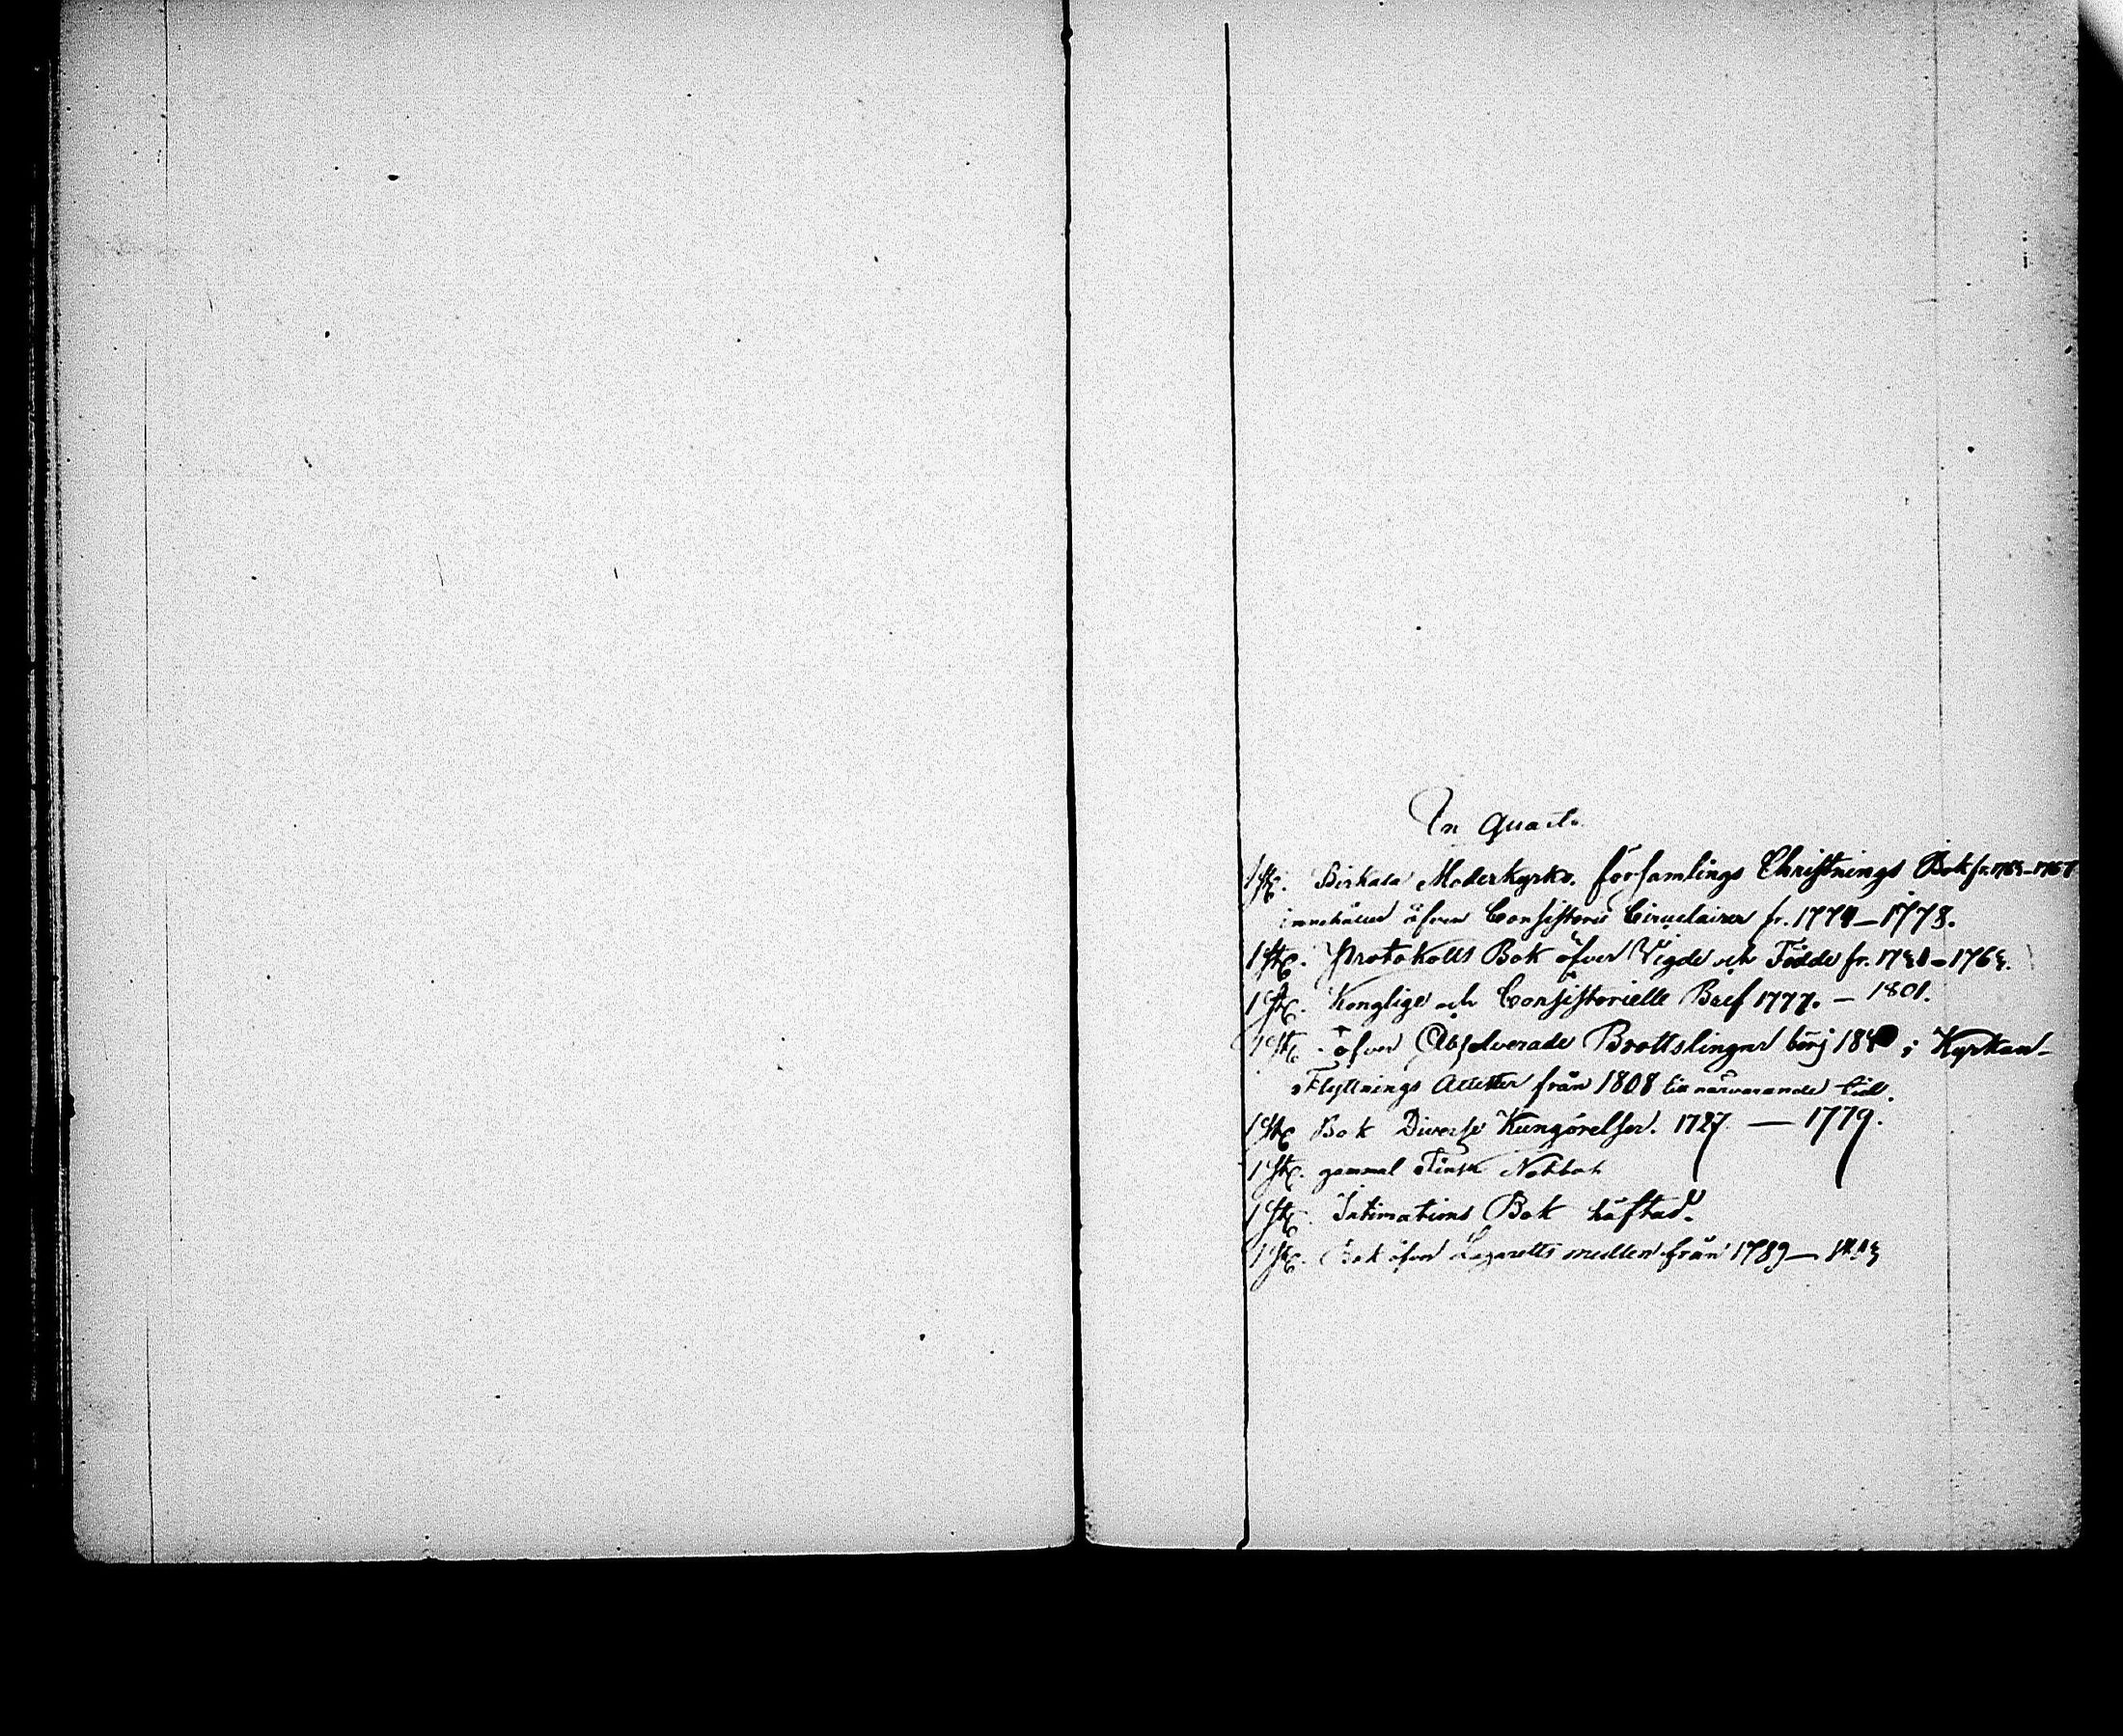 In Quarto
1 St. Birkala Moderkyrko församlings Christnings Bok fr.
innehåller äfven Consistorii Circulairer fr. 1774–1778.
1 St. Protokolls Bok öfver Vigde och Födde fr.
1 St. Konglige och Consistorielle Bref 1777. – 1801.
1 St. öfver Absolverade Brottslingar börj i Kyrkan–
Flyttnings Attester från 1808 till närvarande tid.
1 St. Bok Diverse Kungörelser. 1727. — 1779.
1 St. gammal Finsk
1 St. Intimations Bok häftad.
1 St. Bok öfver Lazaretts medlen från 1789 —